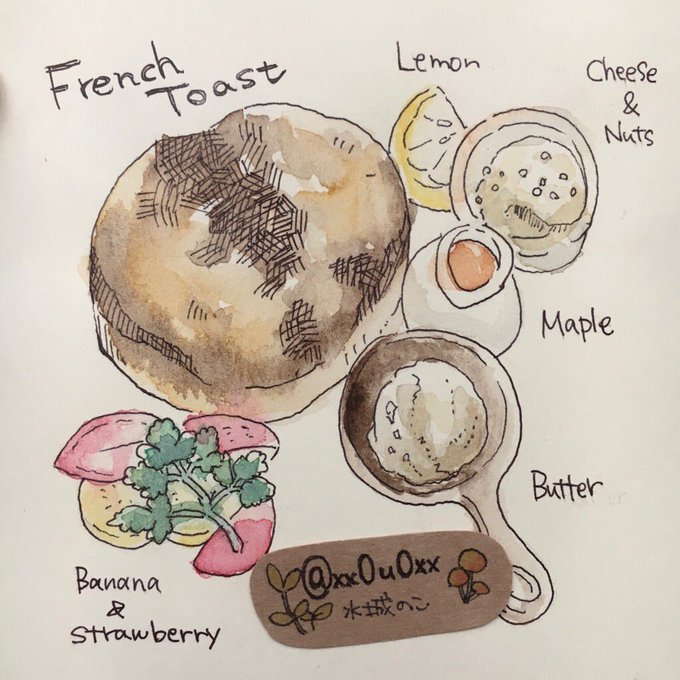 French
Toast
Lemon
Cheese
&
Nuts
Maple
Butter
Banana
&
Strawberry
@xx0u0xx
水城のこ